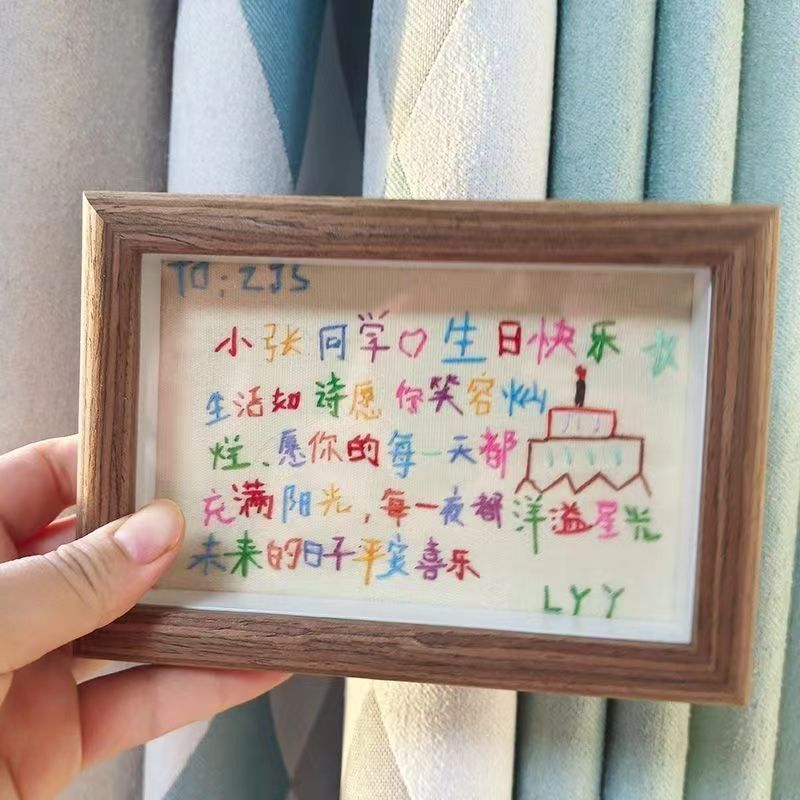 TO:ZJS
小张同学♡生日快乐
生活如诗愿你笑容灿
烂、愿你的每一天都
充满阳光,每一夜都洋溢星光
未来的日子平安喜乐
LYY